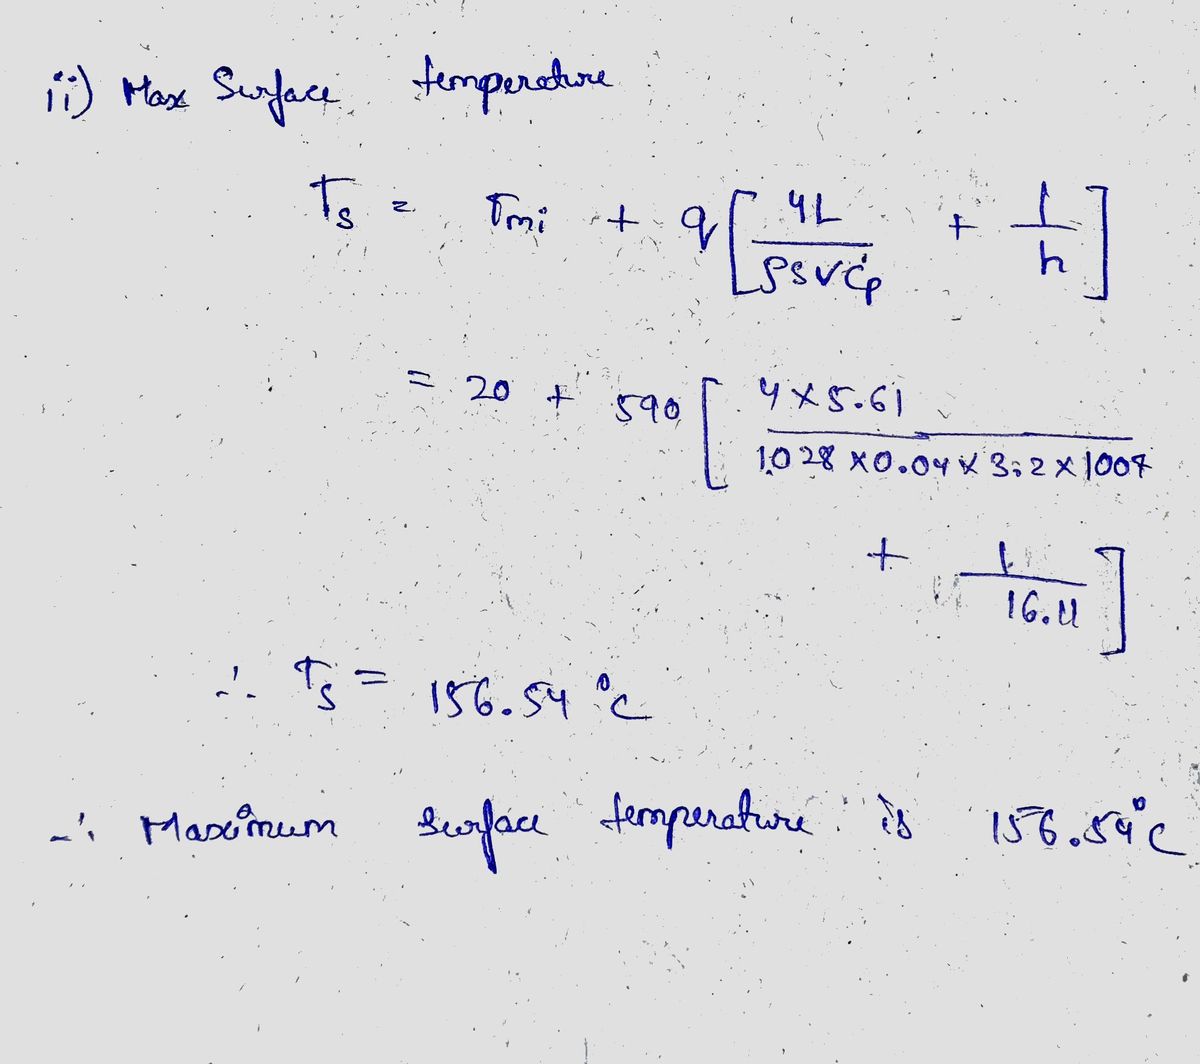 ii) Max Surface temperature
Ts = Tmi + q [ 4L / ρsvCp + 1 / h ]
= 20 + 590 [ 4 × 5.61 / 1.028 × 0.04 × 3.2 × 1007
+ 1 / 16.11 ]
∴ Ts = 156.54 °C
∴ Maximum surface temperature is 156.54°C